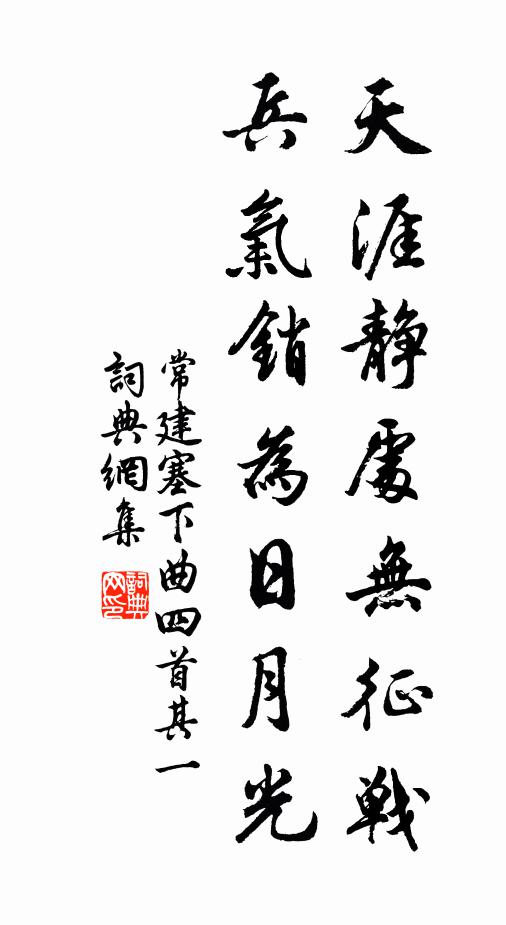 天涯静處無征戰
兵氣銷為日月光
常建塞下曲四首其一
詞典網集
詞典网印